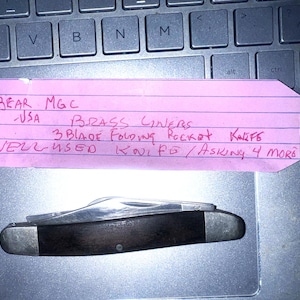 V B N M < >
alt
BEAR MGC
USA BRASS LINERS
3 BLADE FOLDING POCKET KNIFE
WELL USED KNIFE / ASKING 4 MORE